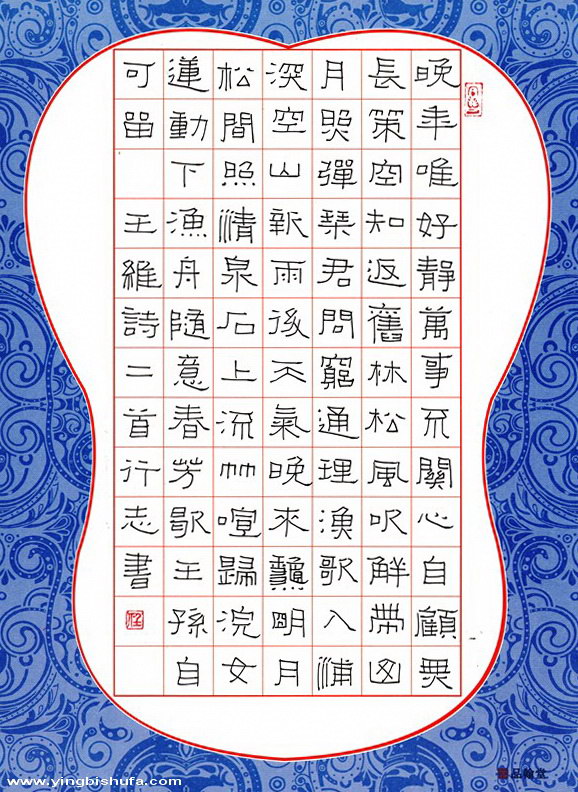 晚年唯好靜萬事不關心自顧無
長策空知返舊林松風吹解帶山
月照彈琴君問窮通理漁歌入浦
深空山新雨後天氣晚來秋明月
松間照清泉石上流竹喧歸浣女
蓮動下漁舟隨意春芳歇王孫自
可留 王維詩二首行志書
www.yingbishufa.com
品翰堂